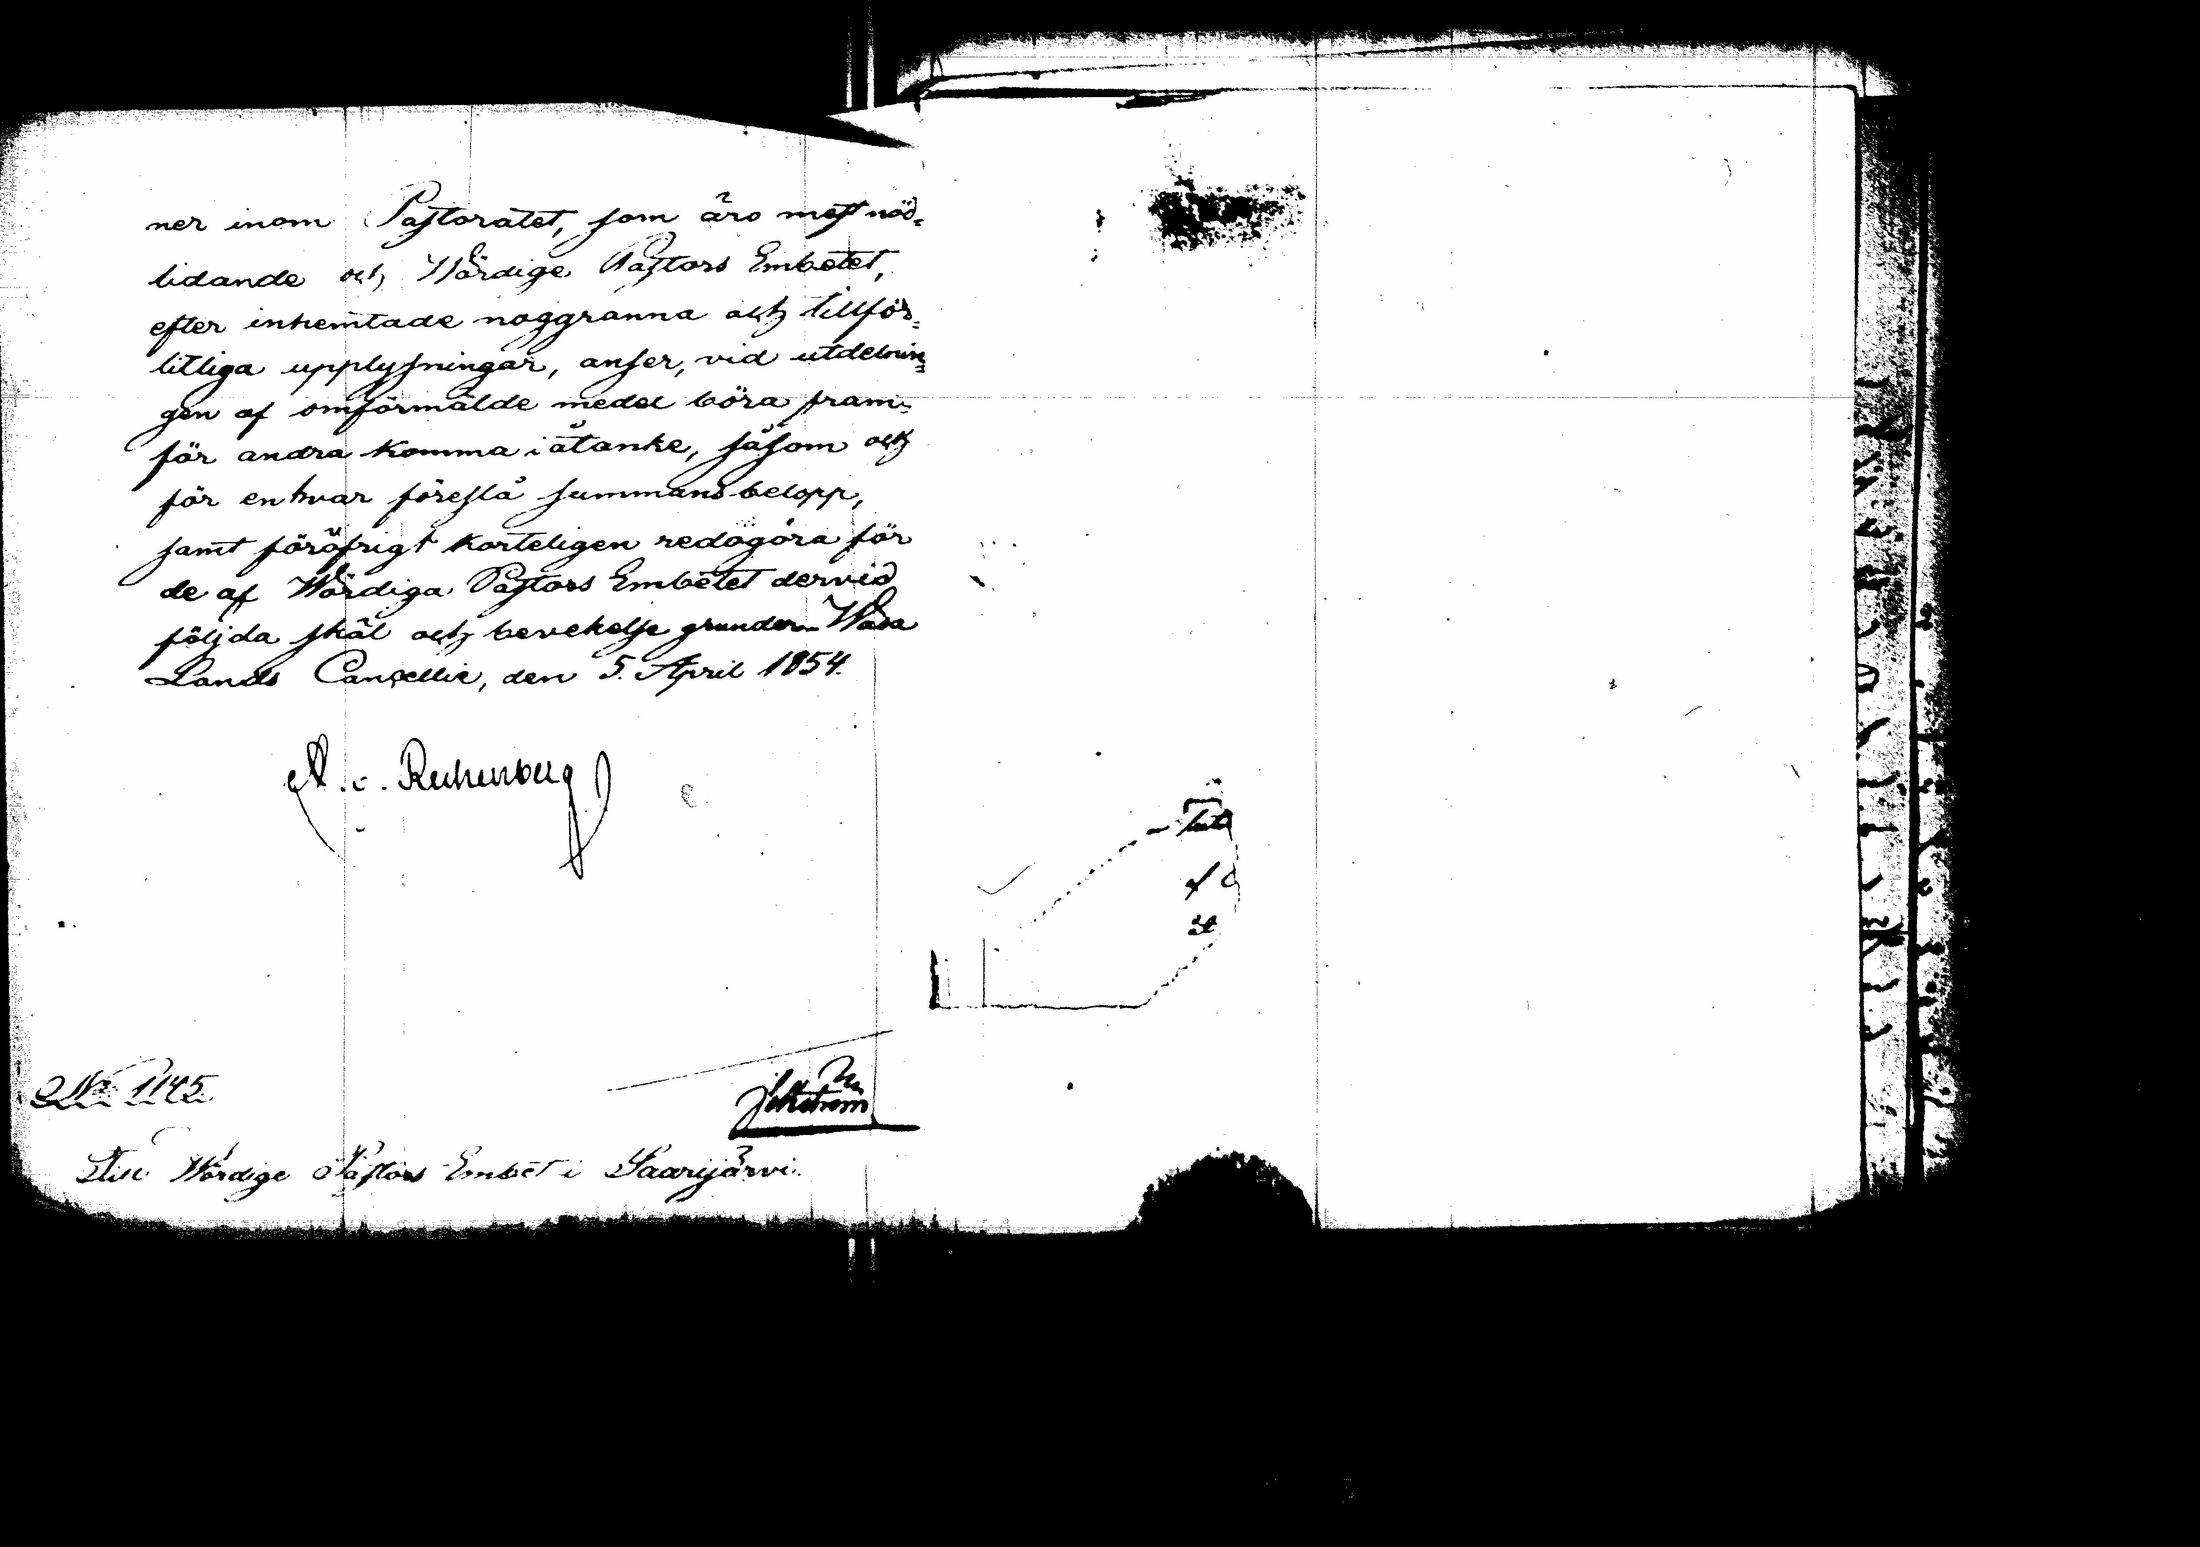 ner inom Pastoratet, som äro mest nöd-
lidande och Wördige Pastors Embetet,
efter inhemtade noggranna och tillför-
litliga upplysningar, anser, vid utdelnin-
gen af omförmälde medel böra fram-
för andra komma i åtanke, såsom och
för en hvar föreslå summans belopp,
samt föröfrigt korteligen redogöra för
de af Wördiga Pastors Embetet dervid
följda skäl och bevekelse grunder. Wasa
Lands Cancellie, den 5. April 1854.
Rechenberg
No 1145.
Till Wördige Pastors Embet i Saarijärvi.